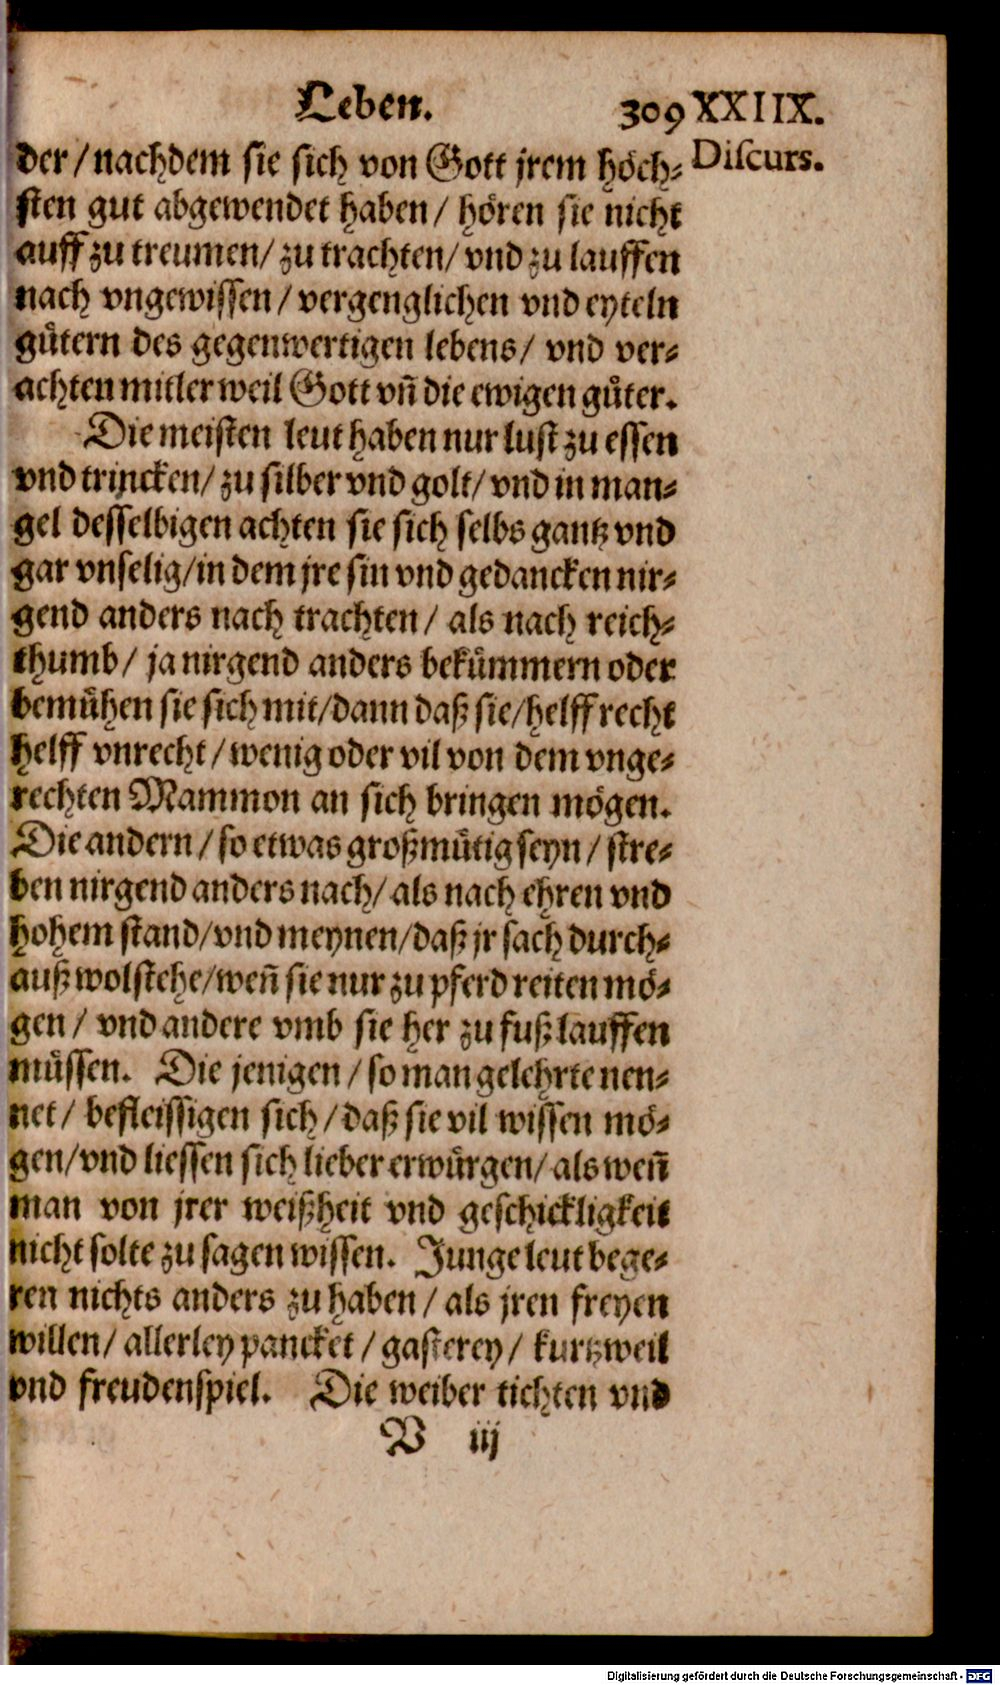 Leben. 309 XXIIX.
der / nachdem sie sich von Gott jrem höch- Discurs.
sten gut abgewendet haben / hören sie nicht
auff zu treumen / zu trachten / vnd zu lauffen
nach vngewissen / vergenglichen vnd eyteln
gütern des gegenwertigen lebens / vnd ver-
achten mitler weil Gott vñ die ewigen güter.
Die meisten leut haben nur lust zu essen
vnd trincken / zu silber vnd golt / vnd in man-
gel desselbigen achten sie sich selbs gantz vnd
gar vnselig / in dem jre sin vnd gedancken nir-
gend anders nach trachten / als nach reich-
thumb / ja nirgend anders bekümmern oder
bemühen sie sich mit / dann daß sie / helff recht
helff vnrecht / wenig oder vil von dem vnge-
rechten Mammon an sich bringen mögen.
Die andern / so etwas großmütig seyn / stre-
ben nirgend anders nach / als nach ehren vnd
hohem stand / vnd meynen / daß jr sach durch-
auß wol stehe / weñ sie nur zu pferd reiten mö-
gen / vnd andere vmb sie her zu fuß lauffen
müssen. Die jenigen / so man gelehrte nen-
net / befleissigen sich / daß sie vil wissen mö-
gen / vnd liessen sich lieber erwürgen / als weñ
man von jrer weißheit vnd geschickligkeit
nicht solte zu sagen wissen. Junge leut bege-
ren nichts anders zu haben / als jren freyen
willen / allerley pancket / gasterey / kurtzweil
vnd freudenspiel. Die weiber tichten vnd
V iij
Digitalisierung gefördert durch die Deutsche Forschungsgemeinschaft - DFG